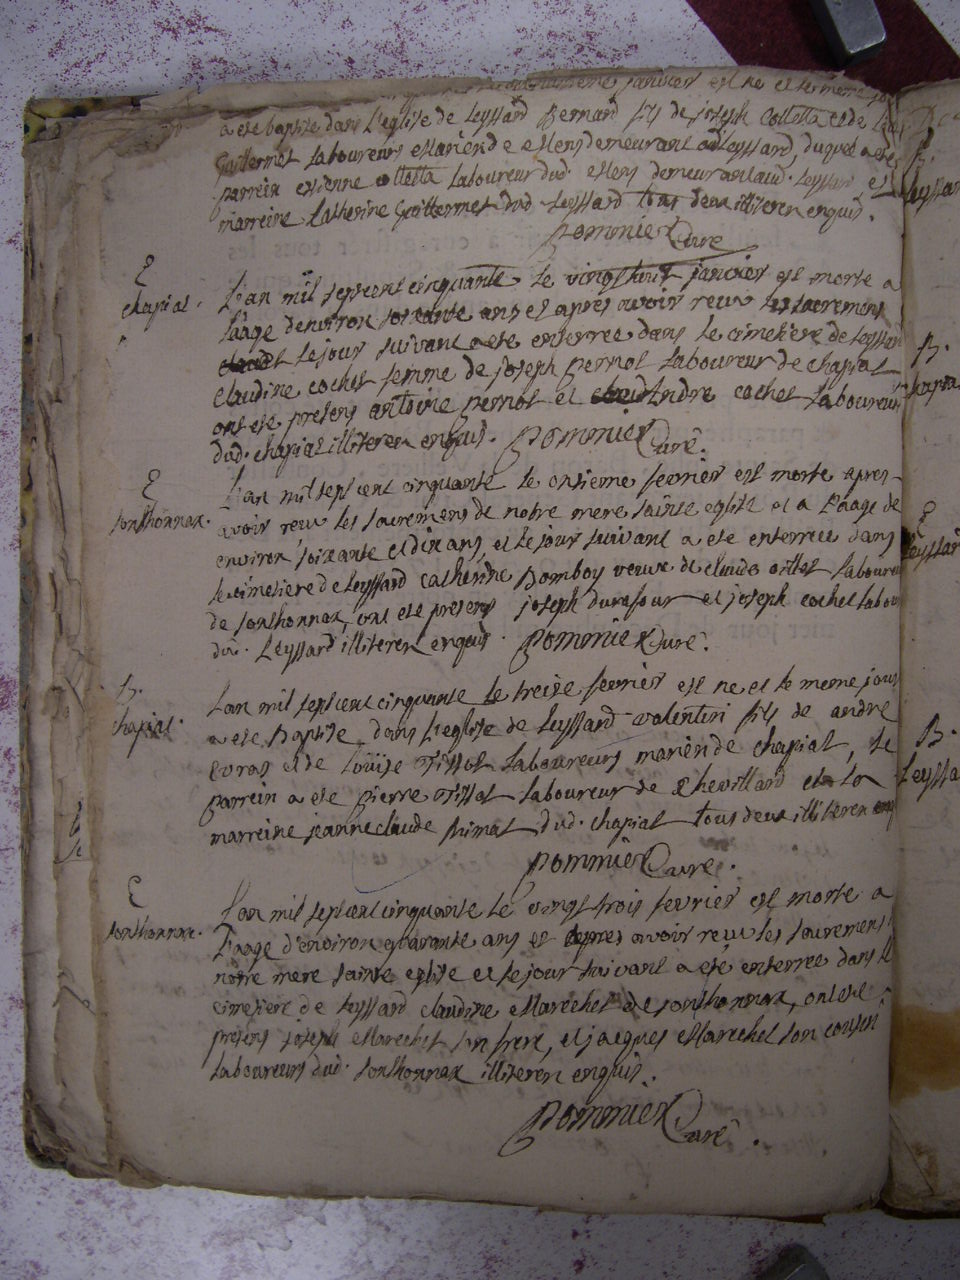 janvier est ne et le meme jour
a ete baptise dans l'eglise de Leyssard Bernard fils de joseph Colletta et de
Guillermet laboureurs demeurant a Leyssard, duquel a ete
parrein estienne Colletta laboureur dud. demeurant aud. Leyssard et
marreine Catherine Guillermet dud Leyssard tous deux illiteren enquis.
pommier Curé
E
chapiat.
L'an mil sept cent cinquante le vingt huit janvier est morte a
l'aage d'environ soixante ans et apres avoir reçu les sacremens
et le jour suivant a ete enterree dans le cimetiere de Leyssard
claudine cochet femme de joseph pernot laboureur de chapiat
ont ete presens antoine pernot et Andre cochet laboureurs
dud. chapiat illiteren enquis. pommier Curé.
E
sonthonnax.
L'an mil sept cent cinquante le onsieme fevrier est morte apres
avoir reçu les sacremens de notre mere sainte eglise et a l'aage de
environ soixante et dix ans, et le jour suivant a ete enterree dans
le cimetiere de Leyssard catherine Bomboy veuve de claude laboureur
de sonthonnax, ont ete presens joseph durafour et joseph cochet labour
dud. Leyssard illiteren enquis. pommier Curé.
B.
chapiat.
L'an mil sept cent cinquante le treise fevrier est ne et le meme jour
a ete Baptise dans l'eglise de Leyssard valentin fils de andre
Evras et de Loüise Tissot laboureurs mariends de chapiat, le
parrein a ete pierre Tissot laboureur de Chevillard et la
marreine jeanne claude primat dud. chapiat tous deux illiteren enq
pommier Curé.
E
sonthonnax.
L'an mil sept cent cinquante le vingt trois fevrier est morte a
l'aage d'environ quarante ans et apres avoir reçu les sacremens
notre mere sainte eglise et le jour suivant a ete enterree dans le
cimetiere de Leyssard claudine Marechet de sonthonnax, ont ete
presens joseph Marechet son frere, et jacques Marechet son cousin
laboureurs dud. sonthonnax illiteren enquis.
pommier Curé.
B.
Leyssar
B.
chapia
E
Leyssar
B.
Leyssa